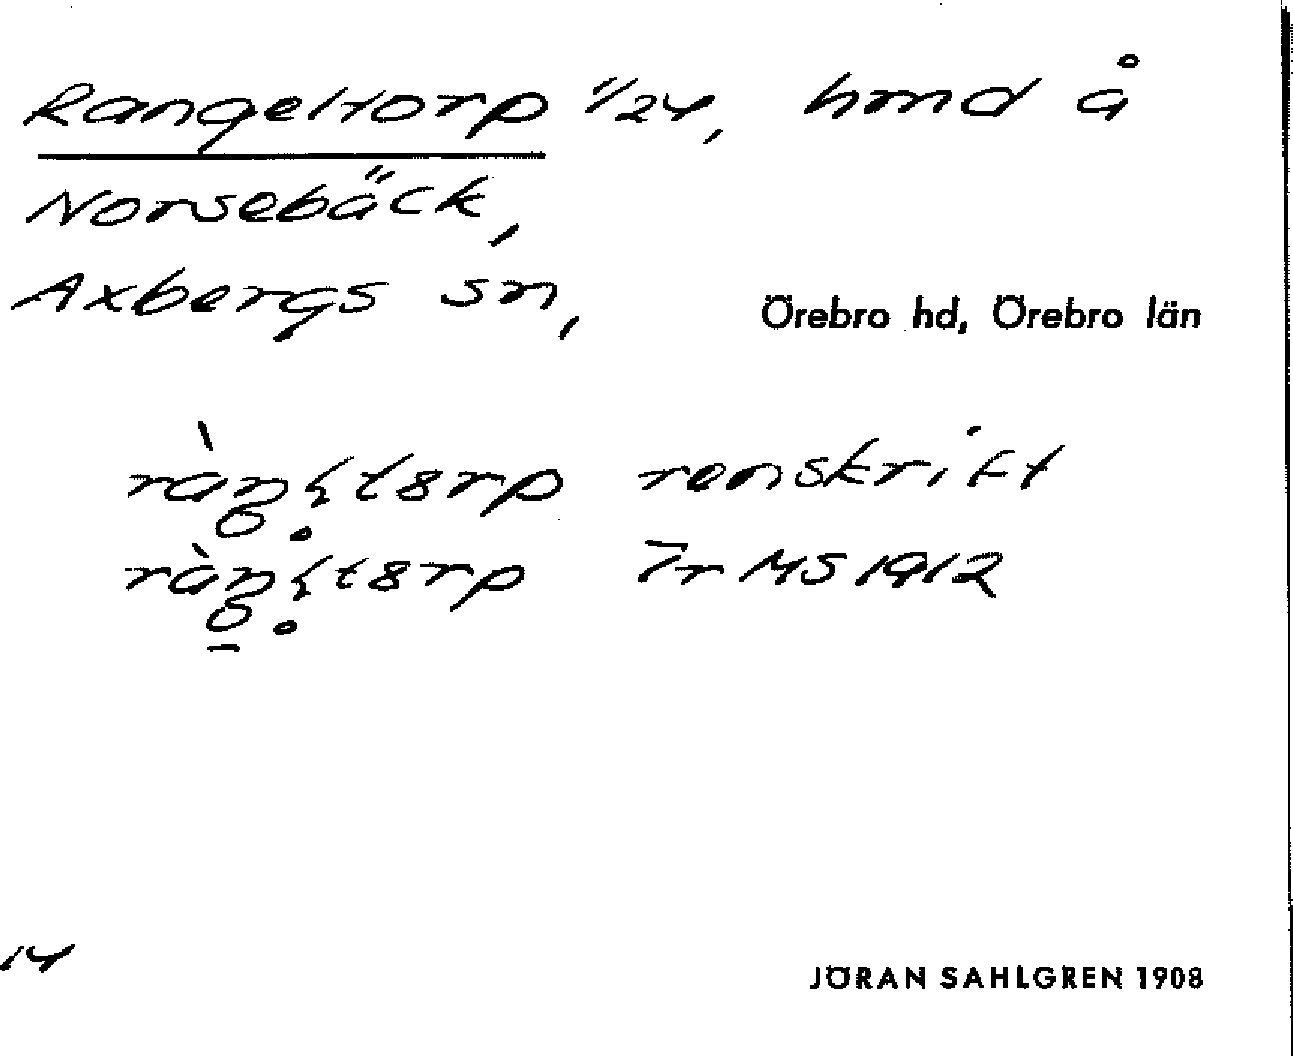 Rangeltorp 1/24, hmd å
Norsebäck,
Axbergs sn, Örebro hd, Örebro län
renskrift
Ir MS 1912
14
JÖRAN SAHLGREN 1908